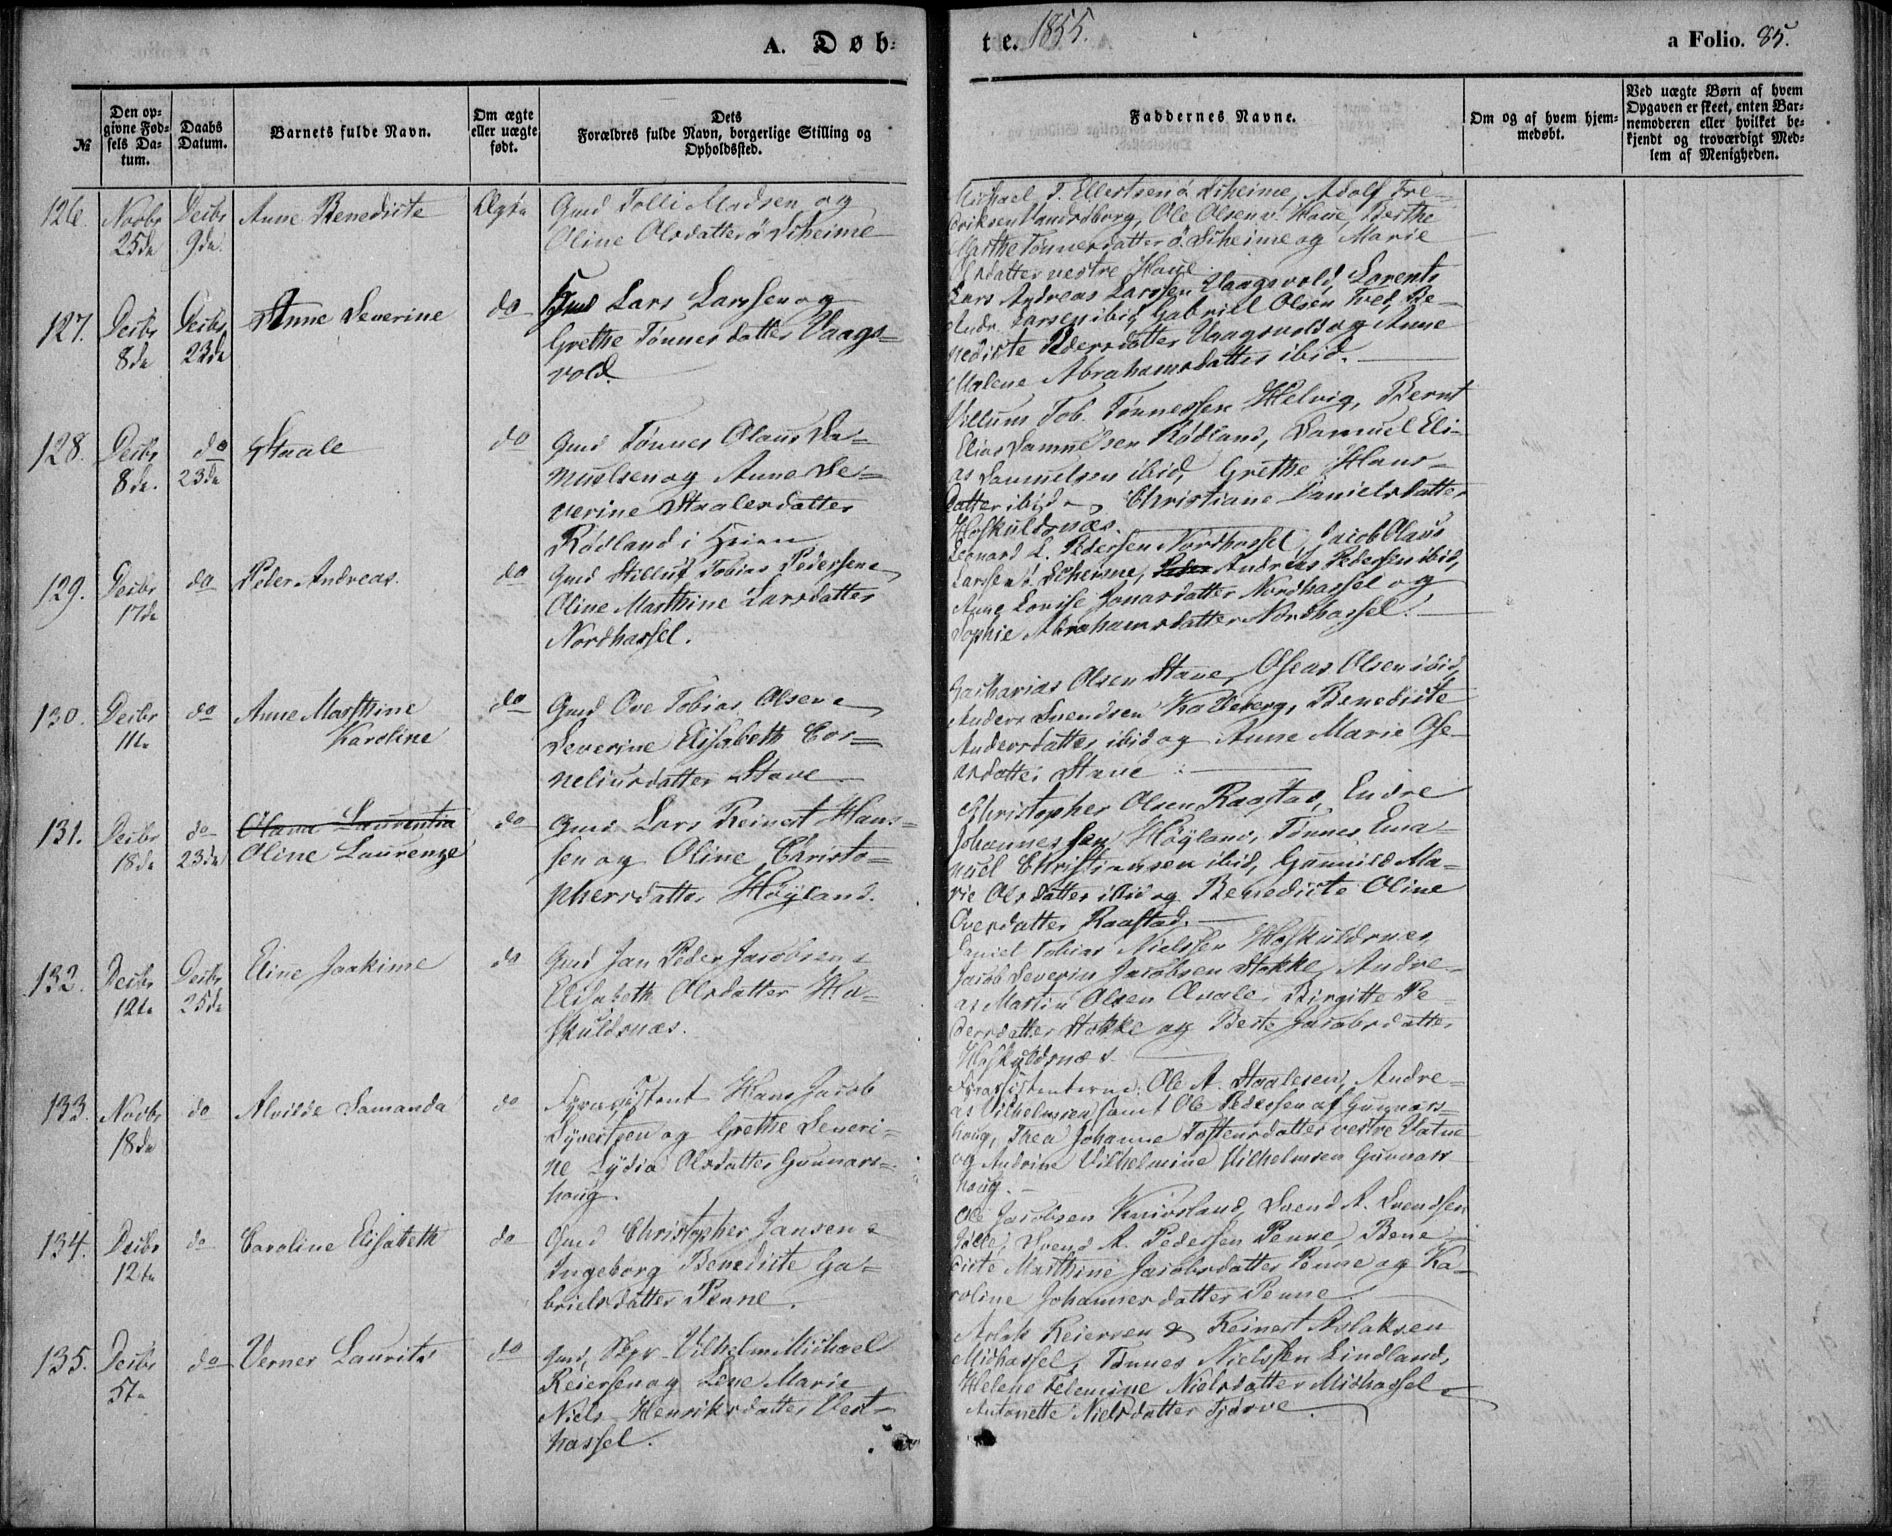 A. Døb=
te. 1855.
a Folio. 85.
№
Den op=
givne Fød=
sels Da=
tum.
Daabs
Datum.
Barnets fulde Navn.
Om ægte
eller uægte
født.
Dets
Forældres fulde Navn, borgerlige Stilling og
Opholdssted.
Faddernes Navne.
Om og af hvem hjem=
medøbt.
Ved uægte Børn af hvem
Opgaven er skeet, enten Bar=
nemoderen eller hvilket be=
kjendt og troværdigt Med=
lem af Menigheden.
126. Novbr 25de
Decbr 9de
Anne Benedicte
Ægte
Gmd Tolli Madsen og
Oline Olsdatter ø. Scheime
Michael T. Ellertsen ø. Scheime, Adolf Fre=
driksen Ole Olsen v. Haue, Berthe
Marthe Tønnesdatter ø. Scheime og Marie
Olsdatter vestre Haue
127. Decbr 8de
Decbr 23de
Anne Severine
do
Gmd Lars Larssen og
Grethe Tønnesdatter Vaags=
vold.
Lars Andreas Larssen Vaagsvold, Lorents
Andr. Larsen ibid, Gabriel Olsen Be=
nedicte Pedersdatter Vaagsvold og Anne
Malene Abrahamsdatter ibid.
128. Decbr 8de.
do 23de
Staale
do
Gmd Tønnes Olaus Sa=
muelsen og Anne Se=
verine Staalesdatter
Rødland i
Villum Tob. Tønnessen Helvig, Bernt
Elias Samuelsen Rødland, Samuel Eli=
as Samuelsen ibid, Grethe Hans=
datter ibid Christiane Danielsdatter
Høskuldsnæs.
129. Decbr 17de
do
Peder Andreas.
do
Gmd Tobias Pedersen &
Oline Marthine Larsdatter
Nordhassel.
Leonard L. Pedersen Nordhassel, Jacob Olaus
Larssen ø. Scheime, Andreas Pedersen ibid,
Anne Lovise Jonasdatter Nordhassel og
Sophie Abrahamsdatter Nordhassel.
130. Decbr 11te
do
Anne Marthine
Karoline
do
Gmd Ove Tobias Olsen &
Severine Elisabeth Cor=
neliusdatter Stave
Zacharias Olsen Stave, Oseas Olsen ibid,
Anders Svendsen Kalleberg, Benedicte
Andersdatter ibid og Anne Marie Ose=
asdatter Stave
131. Decbr 18de
do 23de
Olava Laurentia
Oline Laurenze
do
Gmd Lars Reinert Hans=
sen og Oline Christo=
phersdatter Høyland.
Christopher Olsen Raastad, Endre
Johannessen Høyland, Tønnes Ema=
nuel Christiansen ibid, Gunnild Ma=
rie Olsdatter ibid og Benedicte Oline
Ovesdatter Raastad.
132. Decbr 12te
Decbr 25de
Eline Joakime
do
Gmd Jan Peder Jacobsen &
Elisabeth Olsdatter Hø=
skuldsnæs.
Daniel Tobias Nielssen Høskuldsnæs
Jacob Severin Jacobsen Stokke, Andre=
as Martin Olsen Qvale, Birgitte Pe=
dersdatter Stokke og Berte Jacobsdatter
Høskuldsnæs.
133. Novbr 18de
do
Alvilde Samanda
do
Fyrassistent Hans Jacob
Syvertsen og Grethe Severi=
ne Lydia Olsdatter Gunnars=
houg.
Fyrassistenterne Ole A. Staalesen, Andre=
as Vilhelmsen samt Ole Pedersen af Gunnars=
houg, Thea Johanne Tostensdatter vestre Vatne
og Andrine Vilhelmine Vilhelmsen Gunnars
houg.
134. Decbr 12te
do
Caroline Elisabeth
do
Gmd Christopher Jansen &
Ingeborg Benedicte Ga=
brielsdatter Penne.
Ole Jacobsen Knivsland, Svend A. Svendsen
Jølle, Svend A. Pedersen Penne, Bene=
dicte Marthine Jacobsdatter Penne og Ka=
roline Johannesdatter Penne.
135. Decbr 5te
do
Verner Laurits
do
Gmd, Skpr Vilhelm Michael
Reiersen og Lene Marie
Niels Henriksdatter Vest=
hassel.
Aslak Reiersen & Reinert Aslaksen
Midhassel, Tønnes Nielssen Lindland,
Helene Telemine Nielsdatter Midhassel &
Antonette Nielsdatter Tjørve.